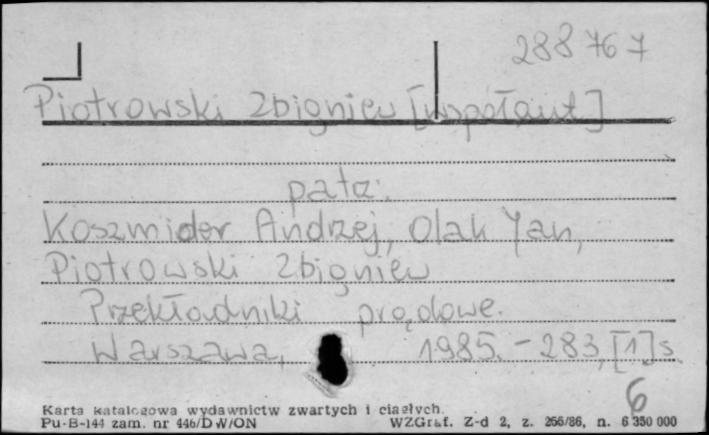 288767
Piotrowski Zbigniew [współaut]
patz:
Koszmider Andrzej, Olak Jan,
Piotrowski Zbigniew
Przekładniki prądowe.
Warszawa, 1985. - 283, [1] s
6
Karta katalogowa wydawnictw zwartych i ciągłych.
Pu-B-144 zam. nr 446/DW/ON WZGraf. Z-d 2, z. 266/86, n. 6 350 000